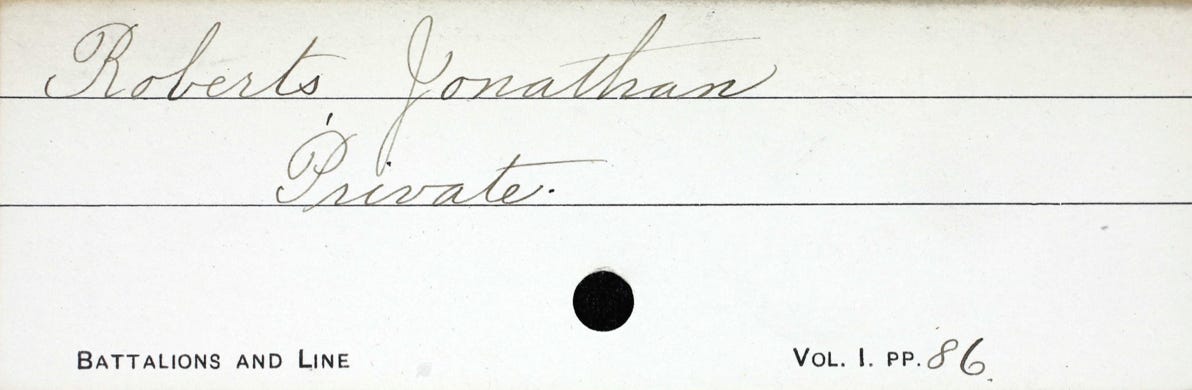 Roberts, Jonathan
Private.
BATTALIONS AND LINE
VOL. I. PP. 86